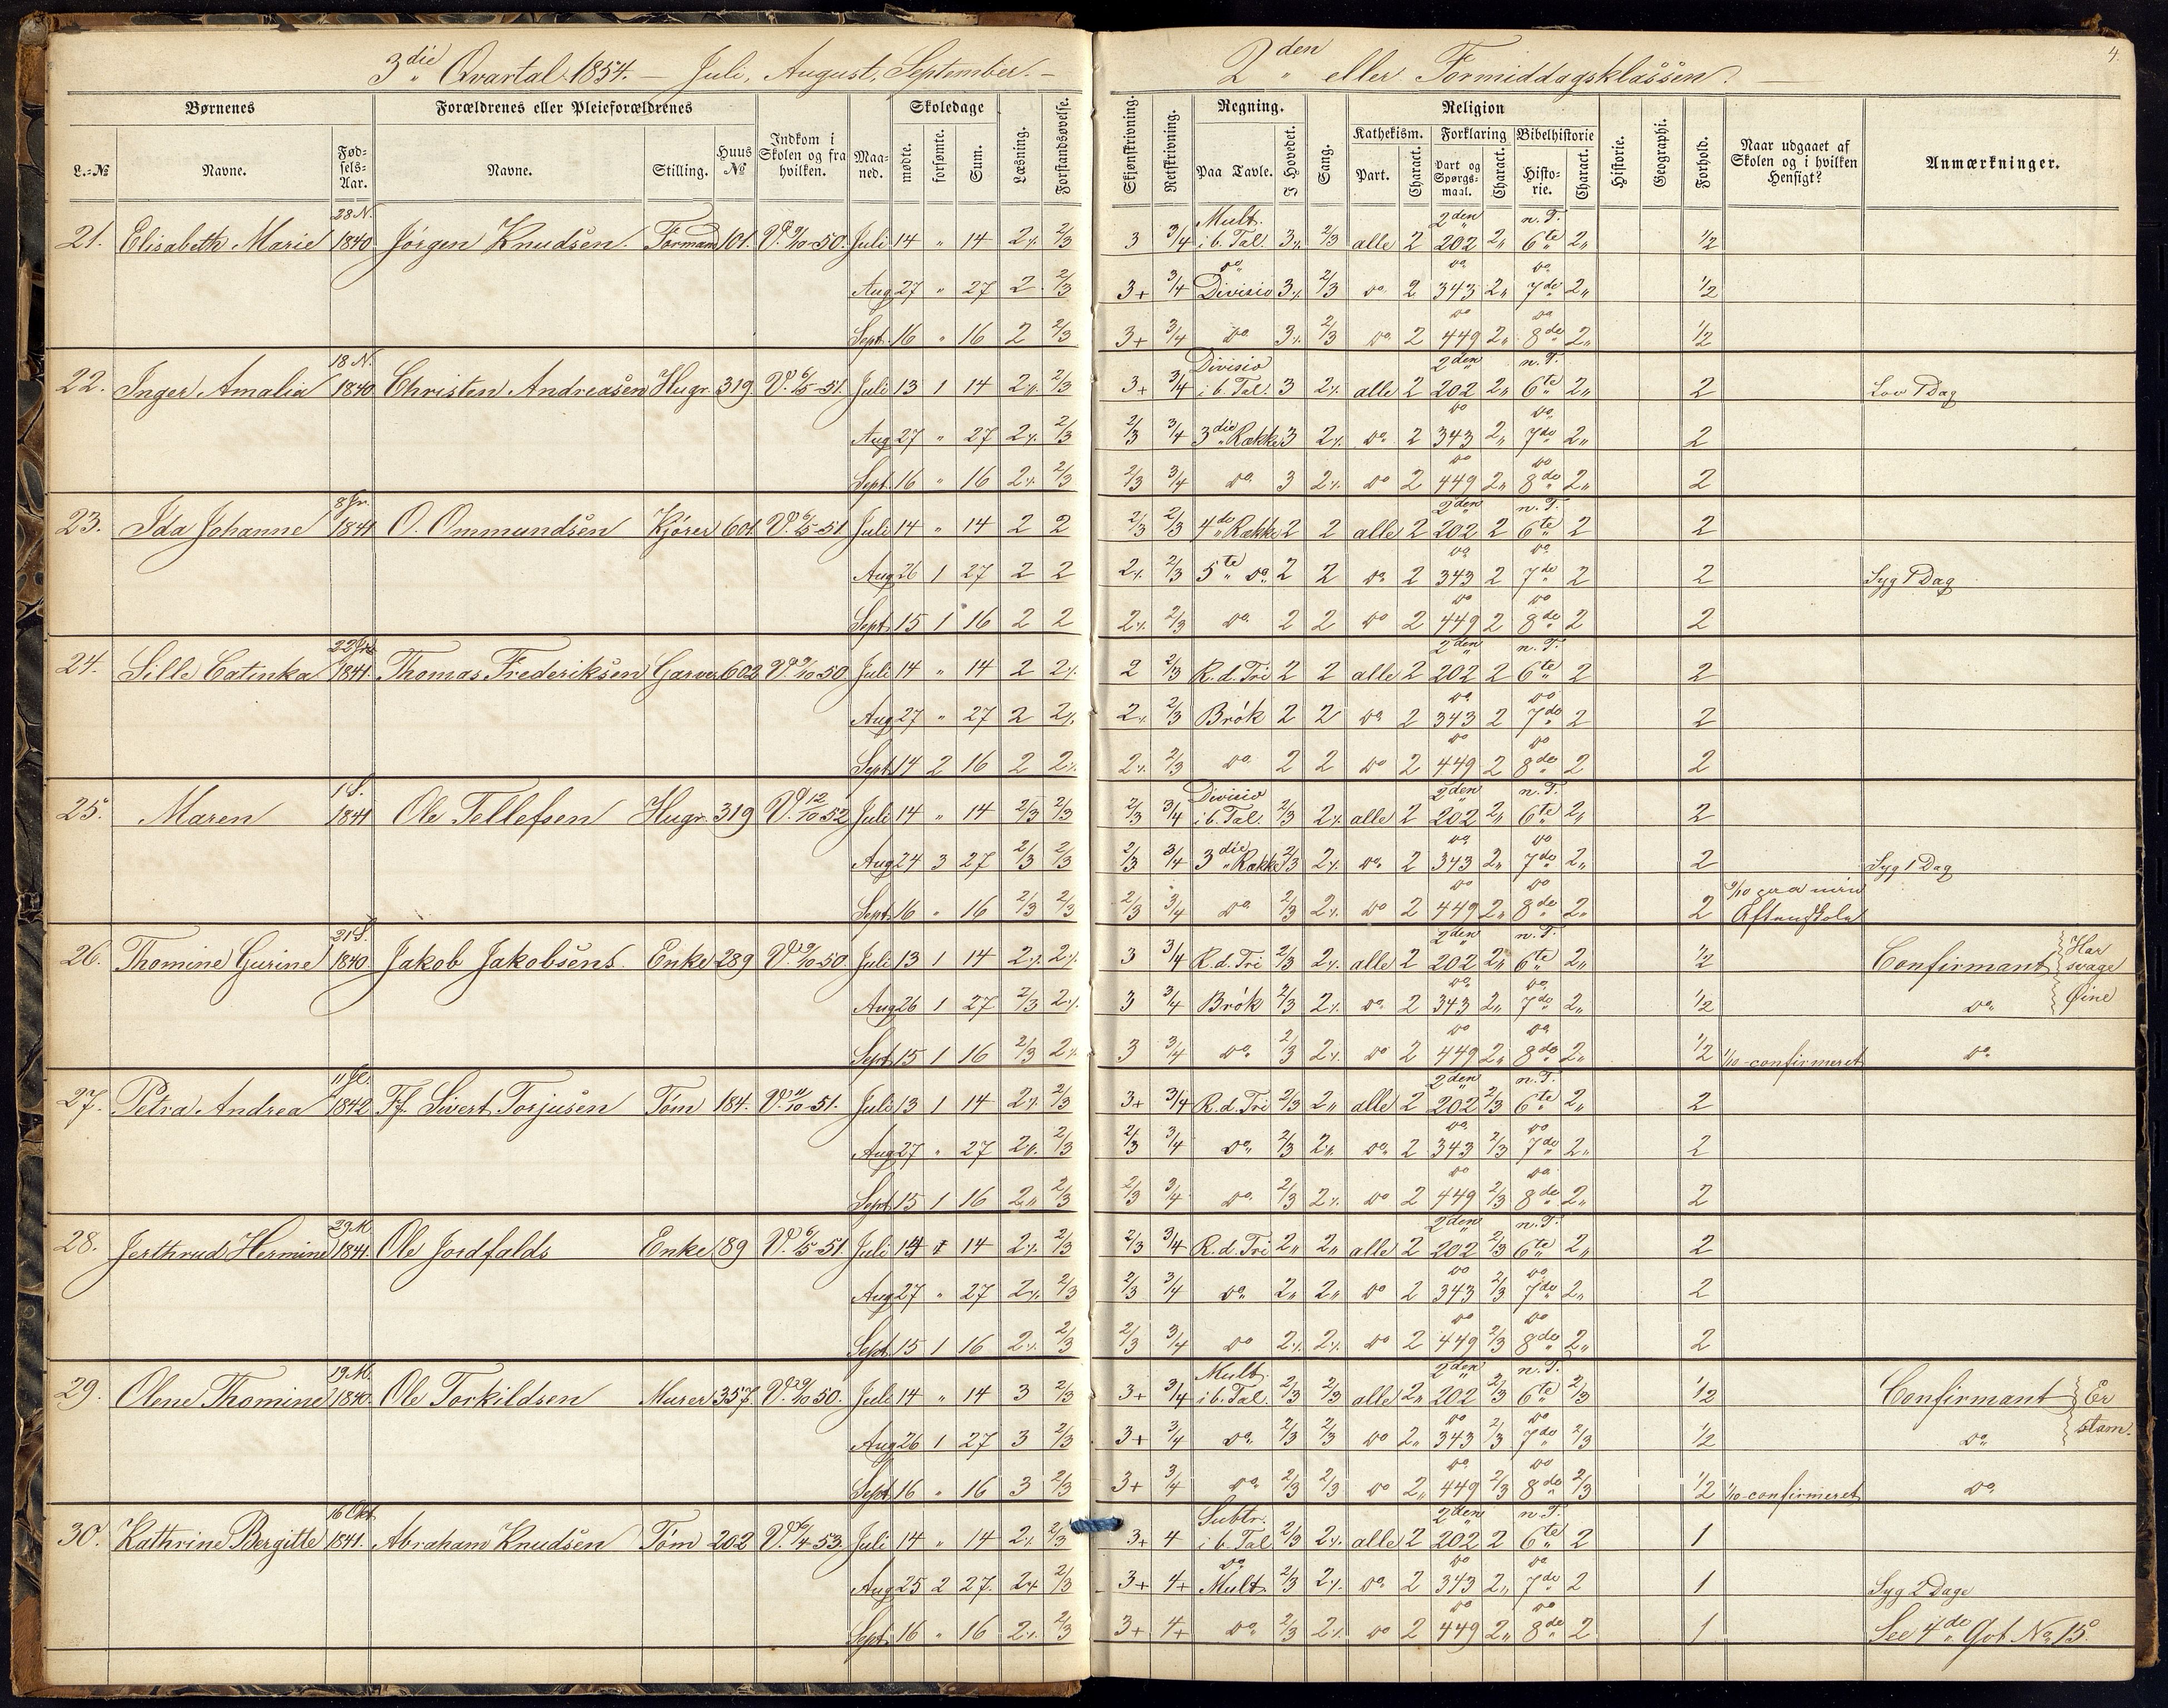 3die Qvartal 1854. — Juli, August, September. —
2den eller Formiddagsklassen. —
4.
Børnenes | Forældrenes eller Pleieforældrenes | Indkom i Skolen og fra hvilken. | Maaned. | Skoledage | Læsning. | Forstandsøvelse.
L.-No | Navne. | Fødsels-Aar. | Navne. | Stilling. | Huus No | mødte. | forsømte. | Sum.
Skjønskrivning. | Retskrivning. | Regning. | Sang. | Religion | Historie. | Geographi. | Forhold. | Naar udgaaet af Skolen og i hvilken Hensigt? | Anmærkninger.
Paa Tavle. | I Hovedet. | Kathekism. | Forklaring | Bibelhistorie
Part. | Charact. | Part og Spørgsmaal. | Charact. | Historie. | Charact.
21. Elisabeth Marie 28 N. 1840 Jörgen Knudsen. Formand 101. V. 9/10-50. Juli 14 " 14 2% 2/3 3 3/4 Mult. i b. Tal. 3% 2/3 alle 2 2den 202 2" n. T. 6te 2" 1/2
Aug 27 " 27 2 2/3 3+ 3/4 do Divisio 3% 2/3 do 2 do 343 2" do 7de 2" 1/2
Sept. 16 " 16 2 2/3 3+ 3/4 do 3% 2/3 do 2 do 449 2" do 8de 2" 1/2
22. Inger Amalia 18 N. 1840 Christen Andreasen Hugr. 319. V. 6/5-51. Juli 13 1 14 2% 2/3 3+ 3/4 Divisio i b. Tal. 3 2% alle 2 2den 202 2" n. T. 6te 2" 2 Lov 1 Dag
Aug 27 " 27 2% 2/3 2/3 3/4 3die Række 3 2% do 2 do 343 2" do 7de 2" 2
Sept. 16 " 16 2% 2/3 2/3 3/4 do 3 2% do 2 do 449 2" do 8de 2" 2
23. Ida Johanne 1841 O. Ommundsen Kjörer 601. V. 6/5-51 Juli 14 " 14 2 2 2/3 2/3 4de Række 2 2 alle 2 2den 202 2 n. T. 6te 2 2
Aug 26 1 27 2 2 2% 2/3 5te do 2 2 do 2 do 343 2 do 7de 2 2 Syg 1 Dag
Sept. 15 1 16 2 2 2% 2/3 do 2 2 do 2 do 449 2 do 8de 2 2
24. Sille Catinka 1841. Thomas Frederiksen Garver 602 V. 9/10 50 Juli 14 " 14 2 2% 2 2/3 R. d. Tri 2 2 alle 2 2den 202 2 n. T. 6te 2 2
Aug 27 " 27 2 2% 2% 2/3 Brök 2 2 do 2 do 343 2 do 7de 2 2
Sept 14 2 16 2 2% 2% 2/3 do 2 2 do 2 do 449 2 do 8de 2 2
25. Maren 1 S. 1841 Ole Tellefsen Hugr. 319 V. 12/10 52 Juli 14 " 14 2/3 2/3 2/3 3/4 Divisio i b. Tal. 2/3 2% alle 2 2den 202 2" n. T. 6te 2" 2
Aug 24 3 27 2/3 2/3 2/3 3/4 3die Række 2/3 2% do 2 do 343 2" do 7de 2" 2 Syg 1 Dag
Sept. 16 " 16 2/3 2/3 2/3 3/4 do 2/3 2% do 2 do 449 2" do 8de 2" 2 Aftenskole
26. Thomine Gurine 21 S. 1840 Jakob Jakobsens Enke 289 V. 9/10 50. Juli 13 1 14 2% 2% 3 3/4 R. d. Tri 2/3 2% alle 2 2den 202 2" n. T. 6te 2" 1/2 Confirmant Har svage Öine
Aug 26 1 27 2/3 2% 3 3/4 Brök 2/3 2% do 2 do 343 2" do 7de 2" 1/2 do
Sept. 15 1 16 2/3 2% 3 3/4 do 2/3 2% do 2 do 449 2" do 8de 2" 1/2 1/10-confirmeret do
27. Petra Andrea 11 Jl. 1842 Ff. Sivert Torjusen Töm 184. V. 11/10-51. Juli 13 1 14 2% 2/3 3+ 3/4 R. d. Tri 2/3 2" alle 2 2den 202 2/3 n. T. 6te 2" 2
Aug 27 " 27 2% 2/3 2/3 3/4 do 2/3 2" do 2 do 343 2/3 do 7de 2" 2
Sept. 15 1 16 2" 2/3 2/3 3/4 do 2/3 2% do 2 do 449 2/3 do 8de 2" 2
28. Jerthrud Hermine 29 M 1841. Ole Jordfalds Enke 89 V. 6/5-51 Juli 14 14 2% 2/3 2/3 3/4 R. d. Tri 2" 2" alle 2 2den 202 2/3 n. T. 6te 2" 2
Aug 27 " 27 2% 2/3 2/3 3/4 do 2" 2" do 2 do 343 2/3 do 7de 2" 2
Sept 15 1 16 2% 2/3 2/3 3/4 do 2% 2% do 2 do 449 2/3 do 8de 2" 2
29. Olene Thomine 19 M. 1840. Ole Torkildsen Murer 357. V. 9/10 50. Juli 14 " 14 3 2/3 3+ 3/4 Mult. i b. Tal. 2/3 2/3 alle 2" 2den 202 2/3 n. T. 6te 2/3 1/2 Confirmant Er stam.
Aug 26 1 27 3 2/3 3+ 3/4 do 2/3 2/3 do 2" do 343 2/3 do 7de 2/3 1/2 do
Sept 16 " 16 3 2/3 3+ 3/4 do 2/3 2/3 do 2" do 449 2/3 do 8de 2/3 1/2 1/10-confirmeret do
30. Kathrine Bergitte 16 Okt 1841. Abraham Knudsen Töm 202 V. 6/4 53. Juli 14 " 14 2% 2/3 3+ 4 Subtr. i b. Tal 2/3 2% alle 2 2den 202 2 n. T. 6te 2 1
Aug 25 2 27. 2% 2/3 3+ 4+ do Mult. 2/3 2% do 2 do 343 2" do 7de 2 1 Syg 2 Dage
Sept. 16 " 16 2% 2/3 3+ 4+ do 2/3 2% do 2 do 449 2" do 8de 2 1 See 4de Qvt No 15